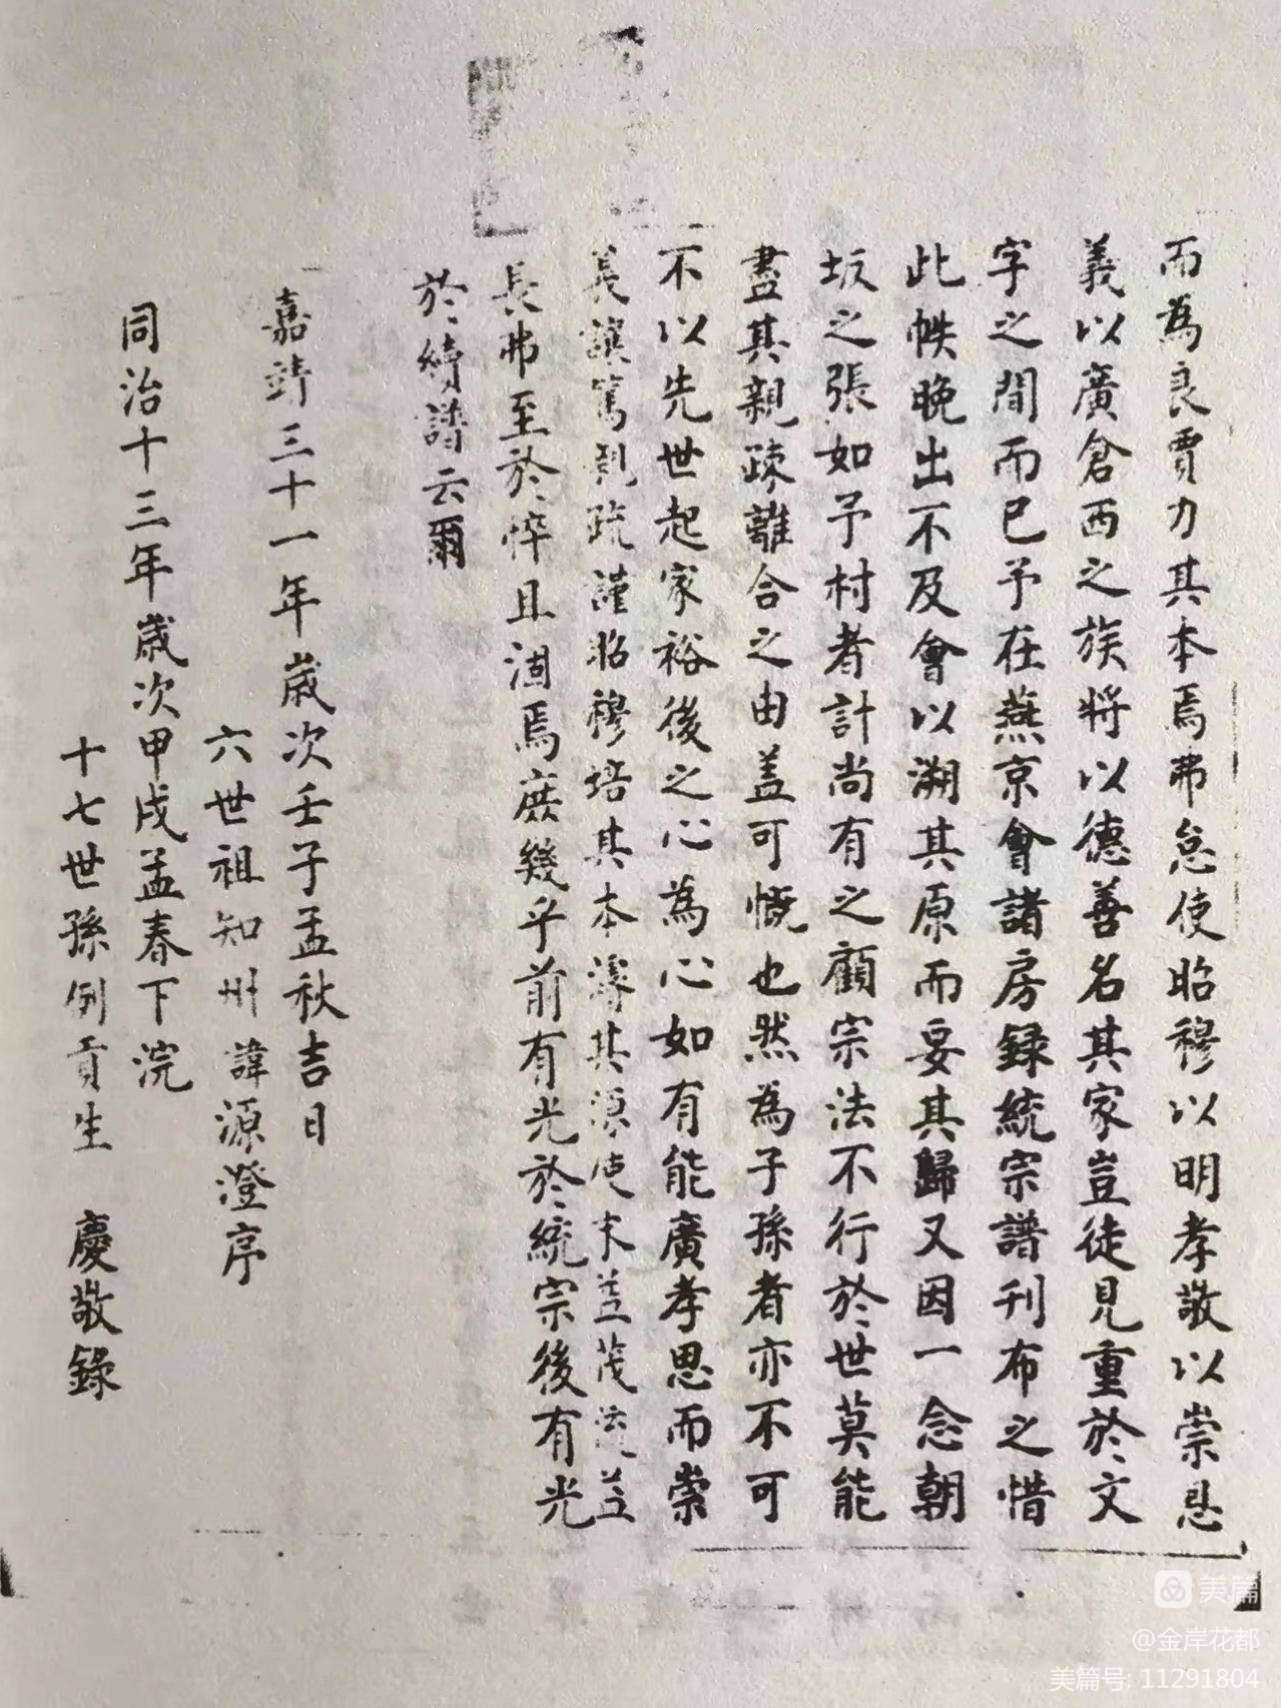 而為良賈力其本焉弗怠使昭穆以明孝敬以崇恩
義以廣倉西之族將以德善名其家豈徒見重於文
字之間而已予在燕京會諸房錄統宗譜刊布之惜
此帙晚出不及會以溯其原而妥其歸又因一念朝
坂之張如予村者計尚有之顧宗法不行於世莫能
盡其親疎離合之由盖可慨也然為子孫者亦不可
不以先世起家裕後之心為心如有能廣孝思而崇
義讓篤親疏謹昭穆培其本濬其源使末益茂流益
長弗至於悴且涸焉庶幾乎前有光於統宗後有光
於續譜云爾
嘉靖三十一年歲次壬子孟秋吉日
六世祖知州諱源澄序
同治十三年歲次甲戌孟春下浣
十七世孫例貢生 慶敬錄
美篇
@金岸花都
美篇号: 11291804